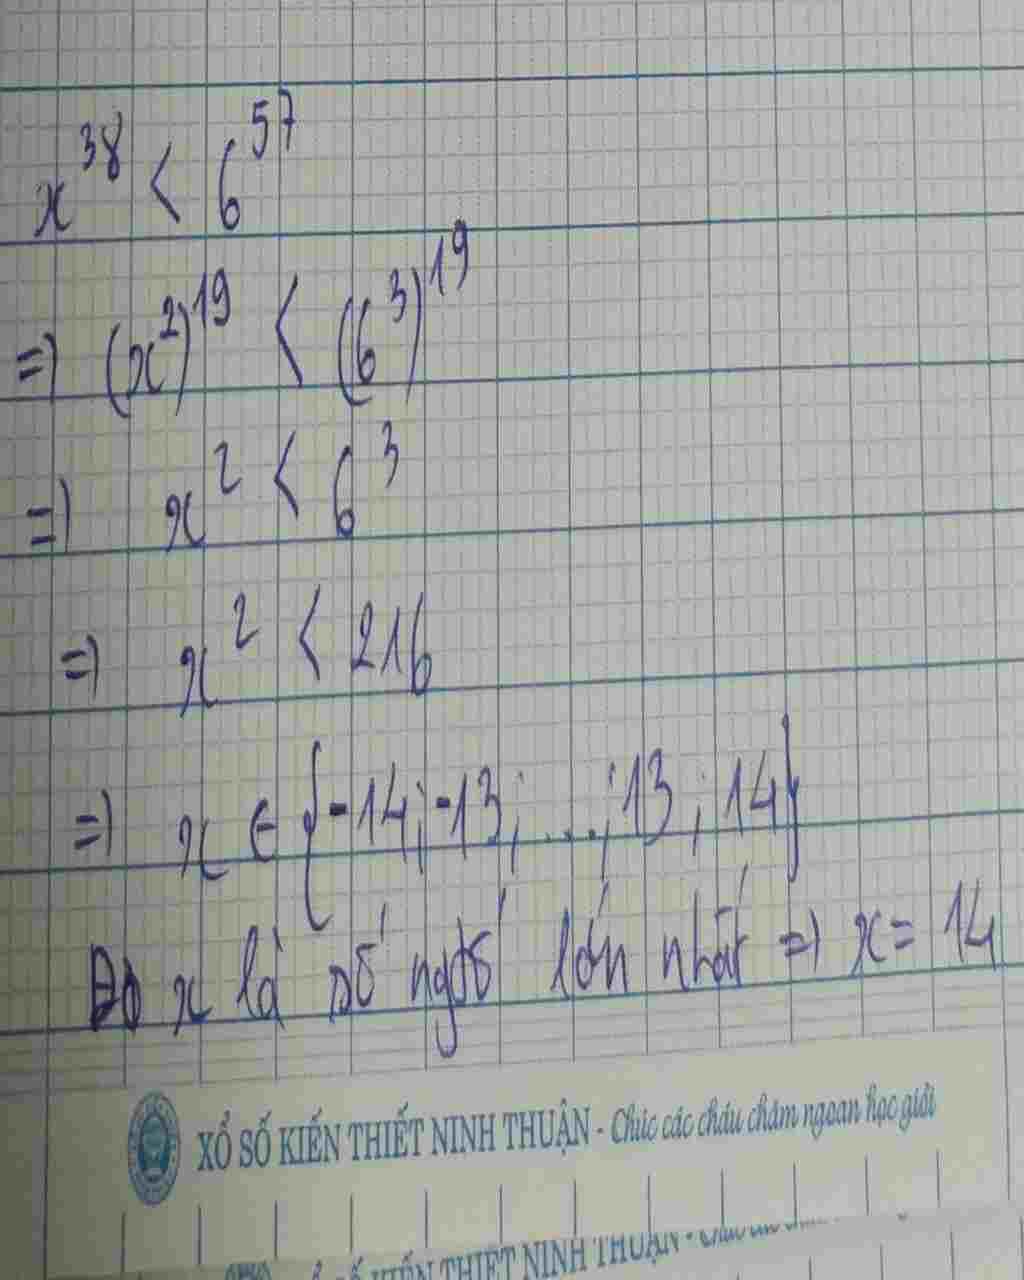 x^38 < 6^57
=> (x^2)^19 < (6^3)^19
=> x^2 < 6^3
=> x^2 < 216
=> x ∈ {-14; -13; ...; 13; 14}
Do x là số lớn nhất => x = 14
XỔ SỐ KIẾN THIẾT NINH THUẬN - Chúc các cháu chăm ngoan học giỏi
KIẾN THIẾT NINH THUẬN -